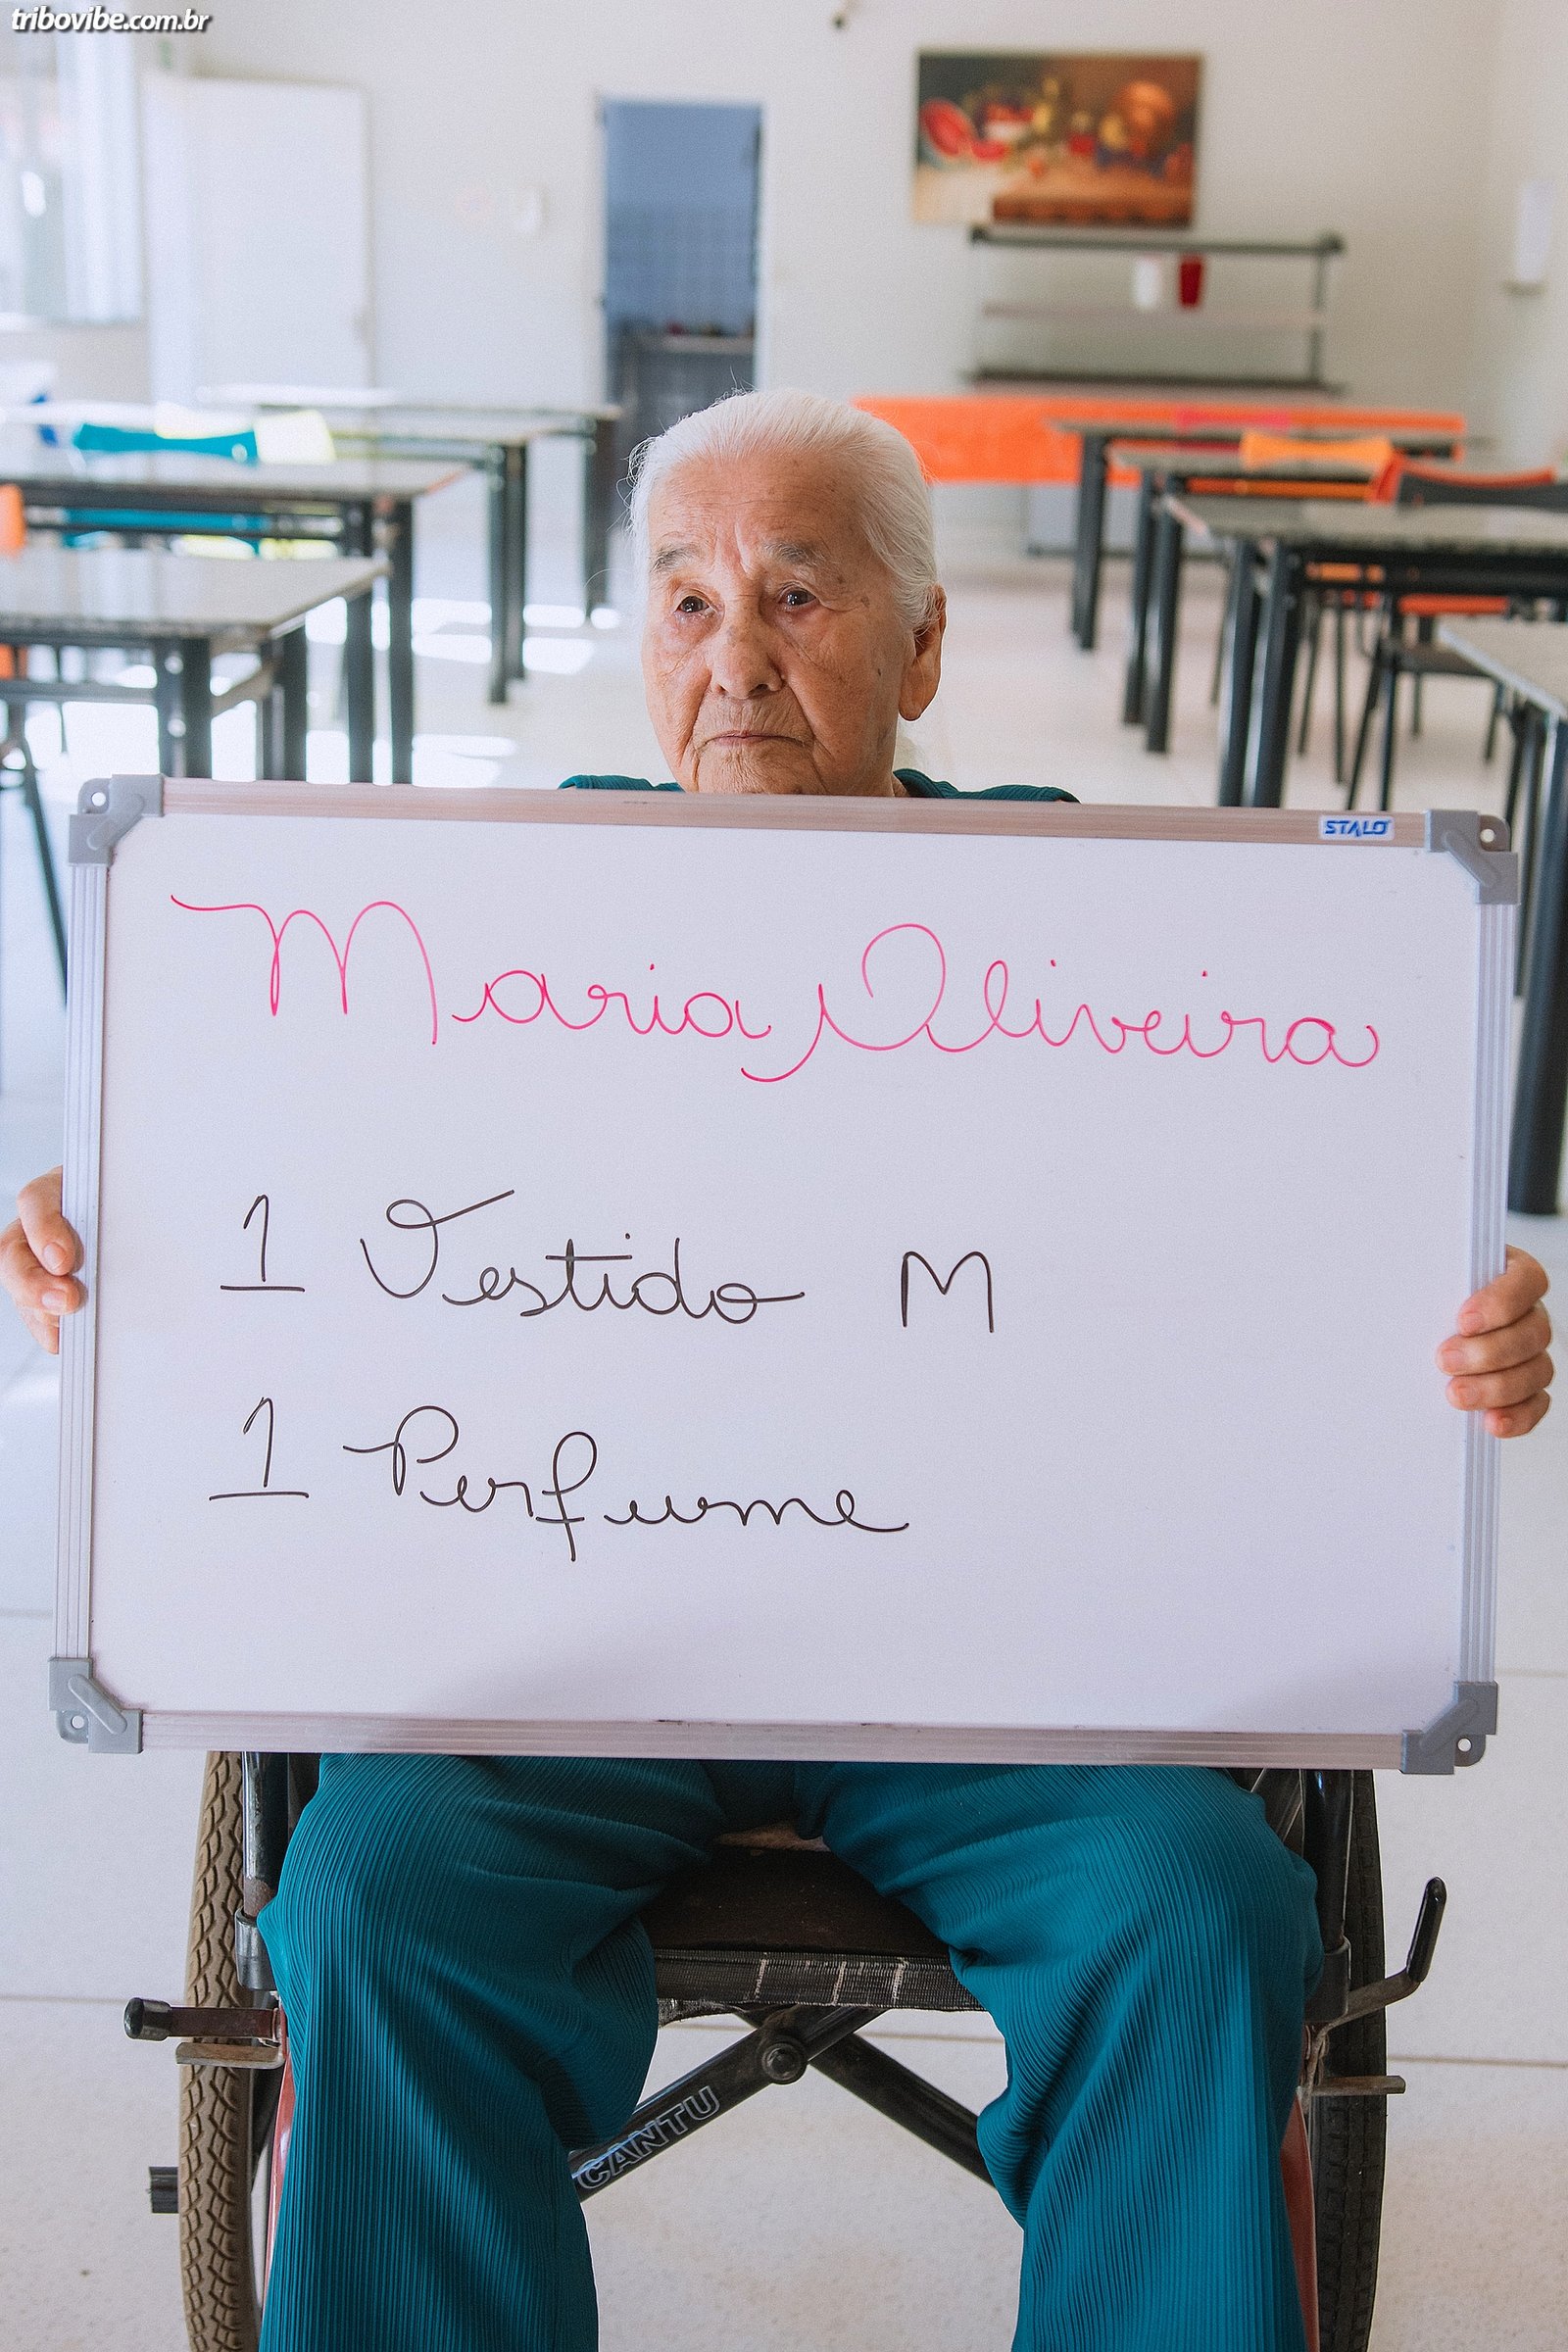 tribovibe.com.br
STALO
Maria Oliveira
1 Vestido M
1 Perfume
CANTU